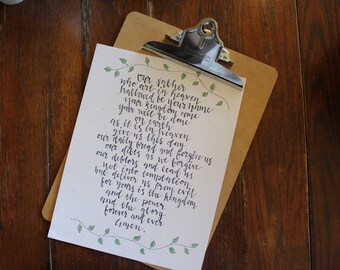 Our father
who art in heaven
hallowed be your name
your kingdom come
your will be done
on earth
as it is in heaven
give us this day
our daily bread and forgive us
our debts as we forgive
our debtors and lead us
not into temptation
but deliver us from evil
for yours is the kingdom
and the power
and the glory
forever and ever
amen.